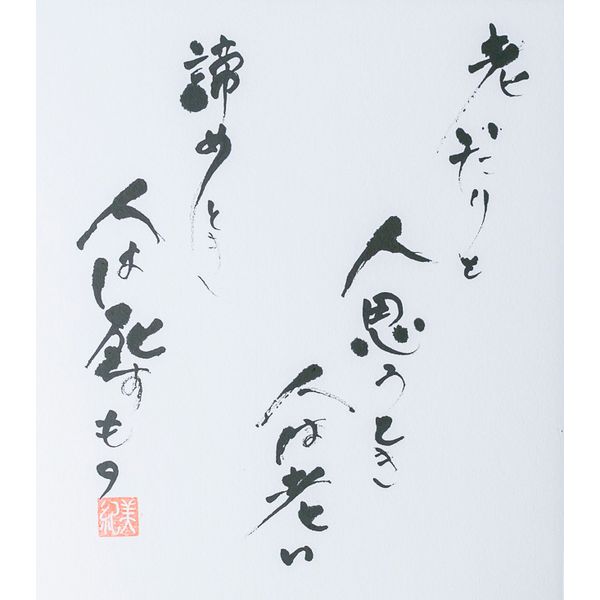 老いたりと
人思うとき
人は老い
諦めとき
人は死すもの
美紀